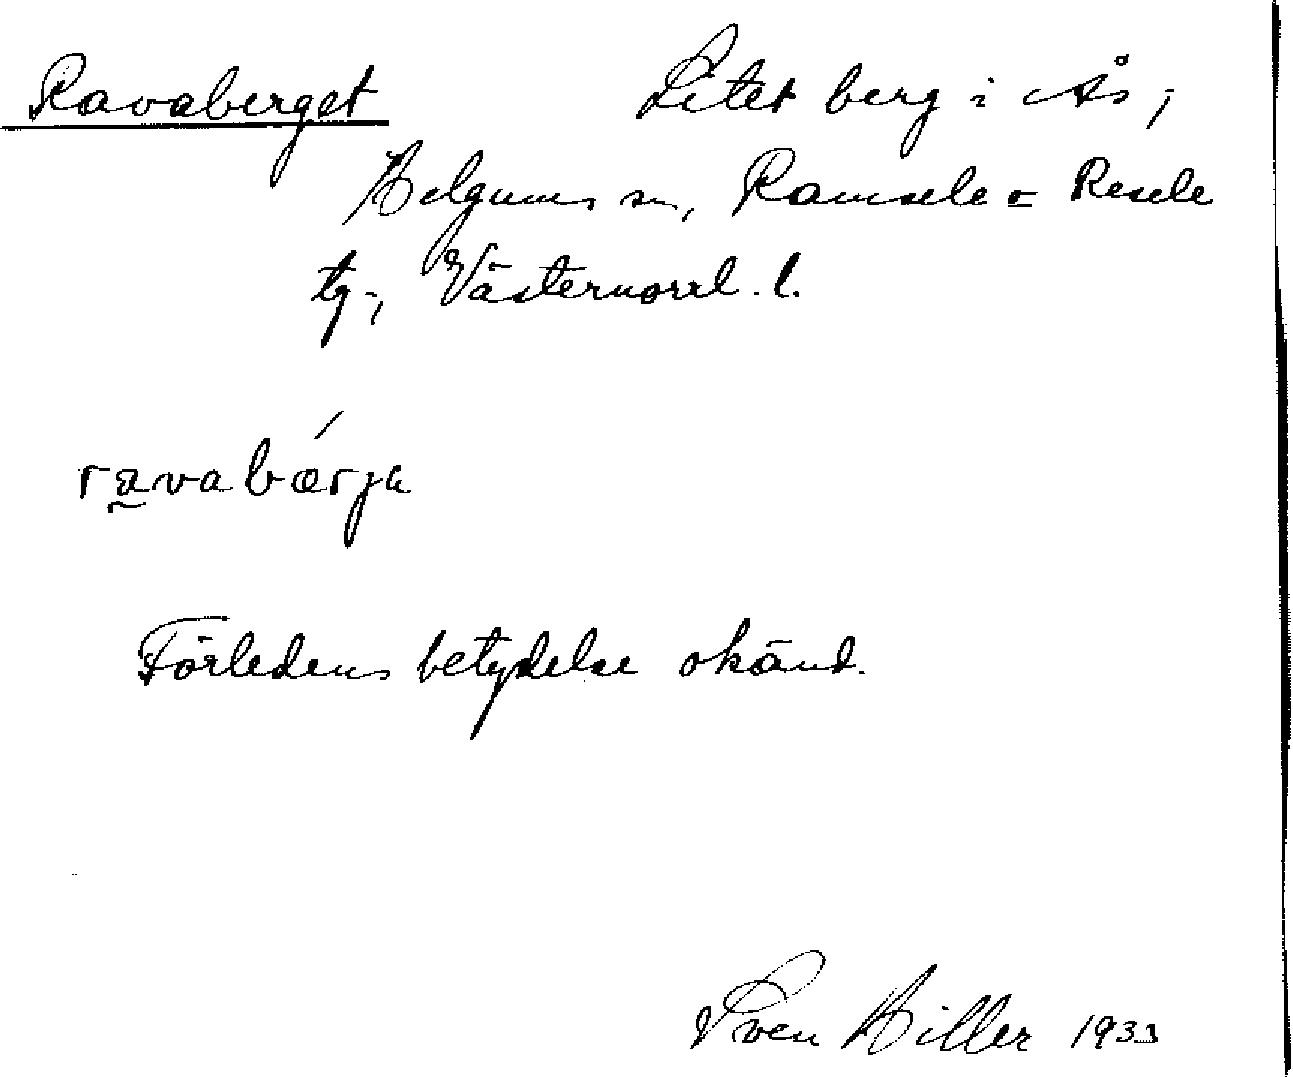 Ravaberget Litet berg i Ås,
Helgums sn, Ramsele o Resele
tg, Västernorrl. l.
ravabærja
Förledens betydelse okänd.
Sven Hiller 1933